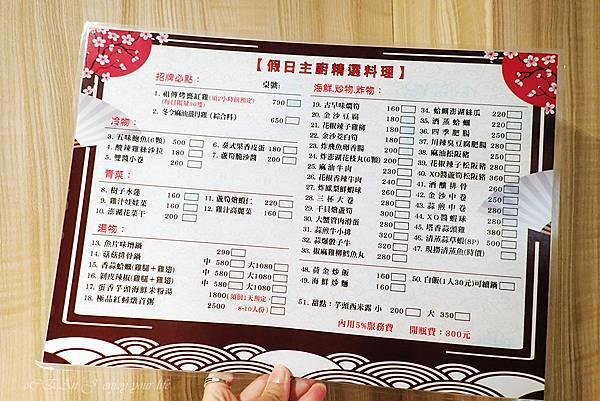 【假日主廚精選料理】
招牌必點：
桌號：
1. 祖傳烤甕缸雞(須2小時前預定)
(每日限量30隻)
790
2. 冬令麻油薑母雞(綜合料)
650
冷物：
3. 五味鮑魚(6顆) 500
4. 酸辣雞絲沙拉 180
5. 雙醬小卷 260
6. 泰式果香皮蛋 180
7. 蘆筍脆沙醬 200
青菜：
8. 樹子水蓮 160
9. 雞汁娃娃菜 160
10. 澎湖花菜干 200
11. 蘆筍燴蝦仁 220
12. 雞汁高麗菜 160
湯物：
13. 魚片味增鍋 290
14. 菇菇排骨鍋 中 580 大1080
15. 香蒜蛤蠣(雞腿+雞翅) 中 580 大1080
16. 剝皮辣椒(雞腿+雞翅) 中 580 大1080
17. 蛋香芋頭海鮮米粉湯 1800(須前1天預定，
18. 極品紅蟳燉首粥 2500 8-10人份)
海鮮.炒物.炸物：
19. 古早味燜筍 160
20. 金沙豆腐 180
21. 花椒辣子雞柳 180
22. 金沙茭白筍 180
23. 炸飛魚卵香腸 180
24. 炸澎湖花枝丸(6顆) 220
25. 麻油牛肉 240
26. 花椒香辣牛肉 240
27. 炸鳳梨鮮蝦球 260
28. 三杯大卷 260
29. 干貝燴蘆筍 260
30. 大蟹管肉滑蛋 260
31. 蒜煎牛小排 280
32. 蒜爆骰子牛 320
33. 椒麻雞柳鱈魚丸
34. 蛤蠣澎湖絲瓜 220
35. 酒蒸蛤蠣 220
36. 四季肥腸 240
37. 川辣臭豆腐肥腸 280
38. 麻油松阪豬 280
39. 花椒辣子松阪豬 280
40. XO醬蘆筍松阪豬 280
41. 酒釀排骨 260
42. 金沙中卷 360
43. 蒜煎中卷 360
44. XO醬蝦球 360
45. 塔香蒜頭雞 380
46. 清蒸蒜草蝦(8P) 380
47. 現撈清蒸魚(時價) 500
48. 黃金炒飯 160
49. 海鮮炒麵 160
50. 白飯(1人30元)可續鍋
51. 甜點：芋頭西米露 小 200 大 350
內用5%服務費 開瓶費：300元